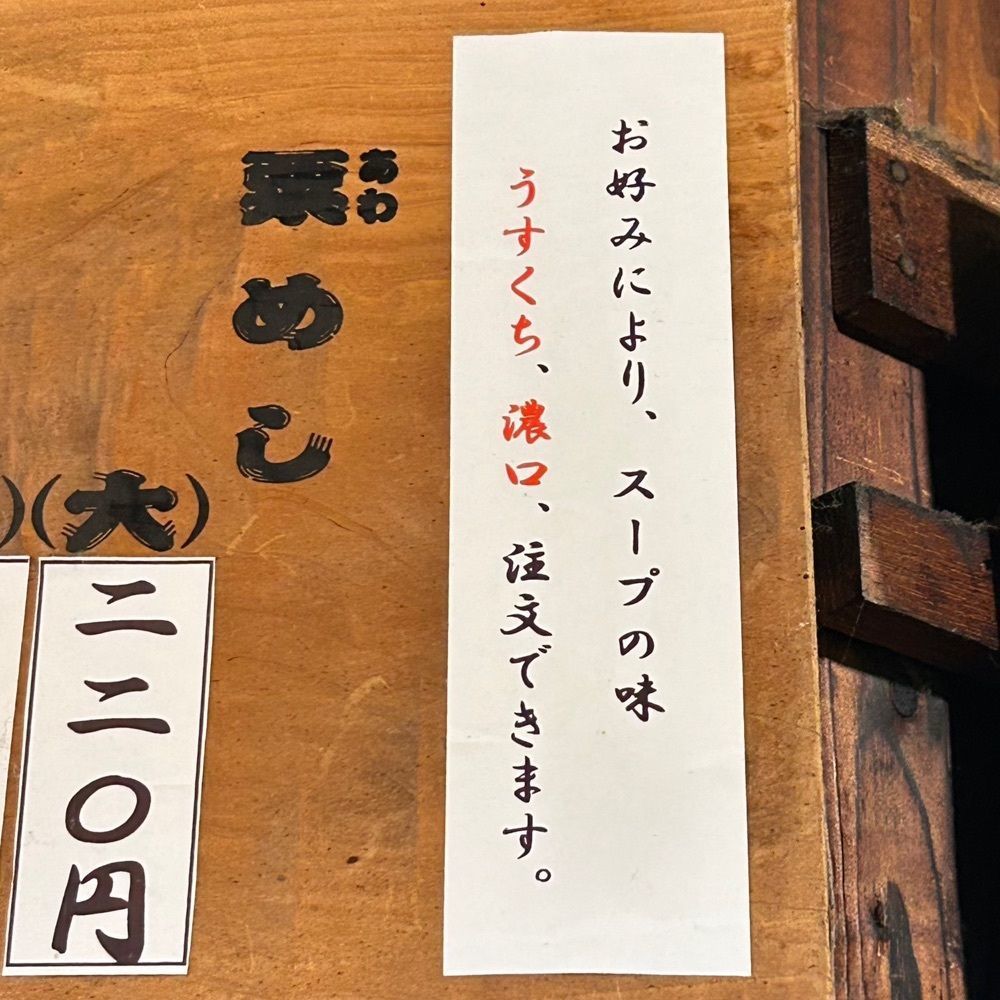 お好みにより、スープの味
うすくち、濃口、注文できます。
あわ
粟めし
(大)
二二〇円